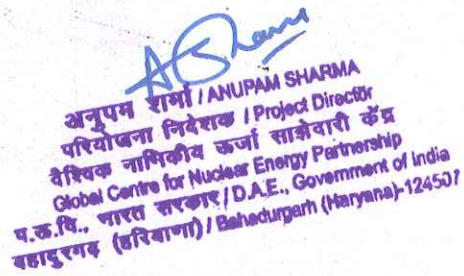 A Sharma
अनुपम शर्मा / ANUPAM SHARMA
परियोजना निदेशक / Project Director
वैश्विक नाभिकीय ऊर्जा साझेदारी केंद्र
Global Centre for Nuclear Energy Partnership
प.ऊ.वि., भारत सरकार / D.A.E., Government of India
बहादुरगढ़ (हरियाणा) / Bahadurgarh (Haryana)-124507